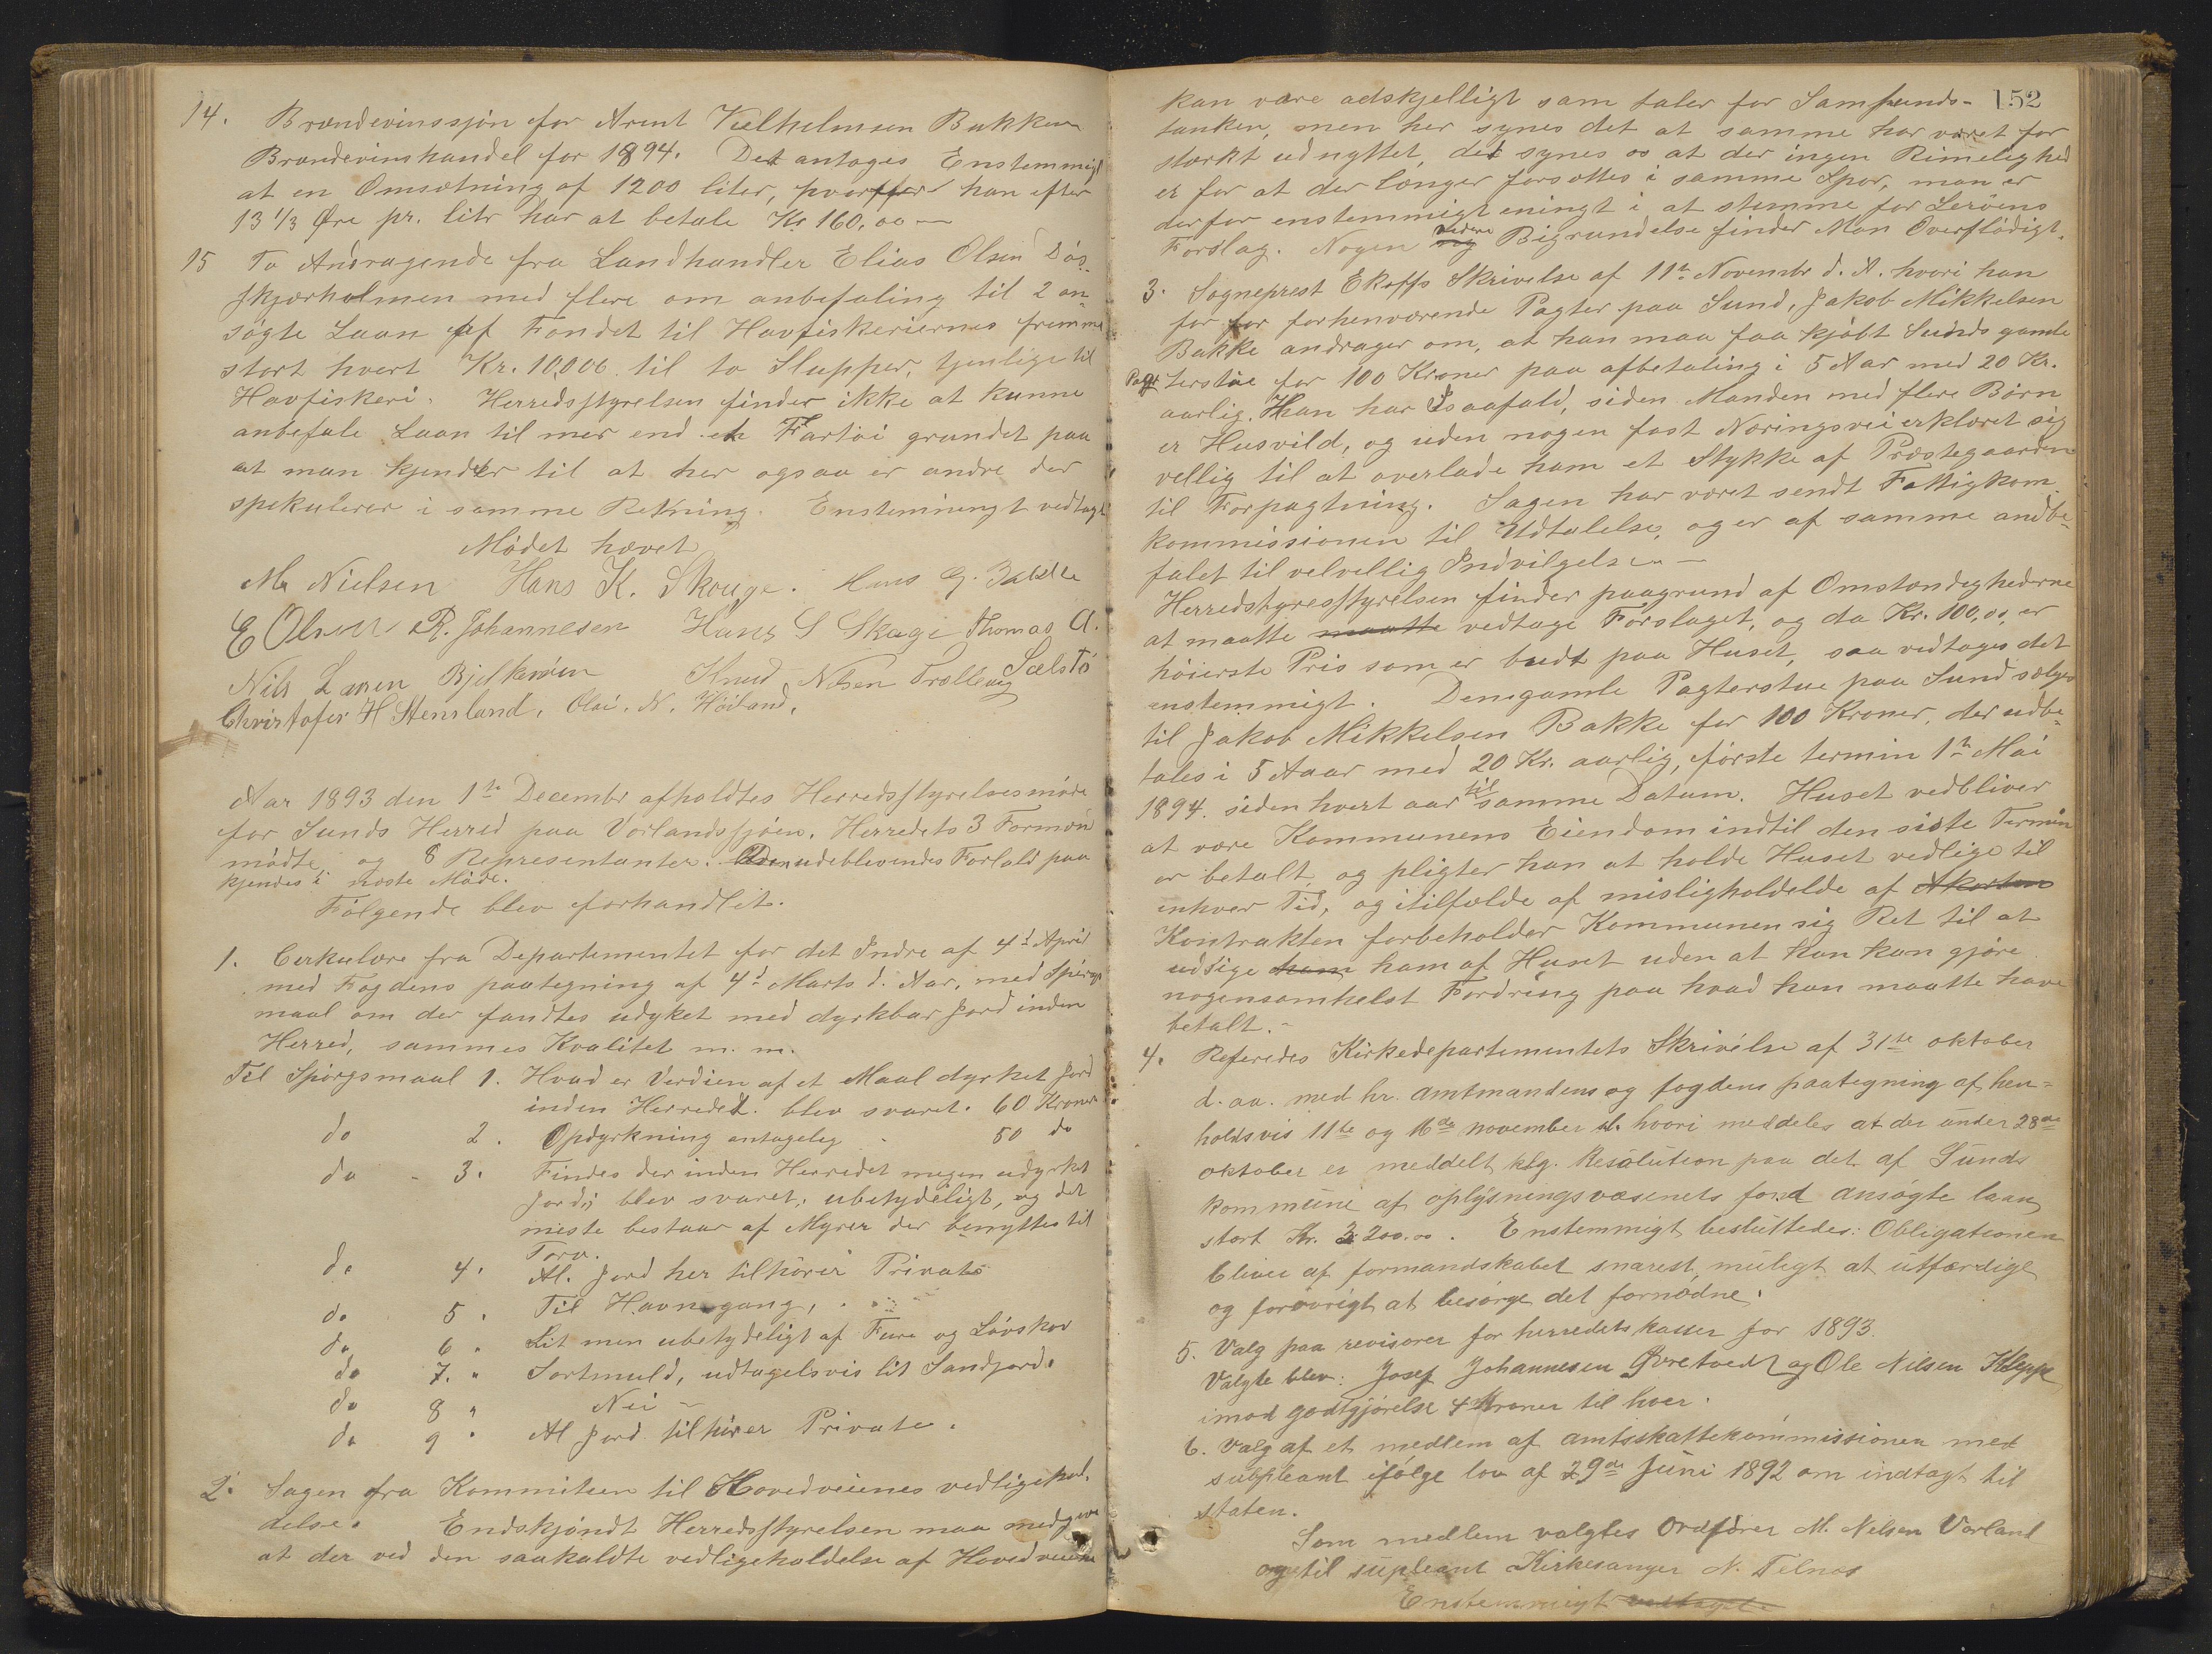 14. Brændevinssjøn for Arent Vielhelmsen Bakken
Brændevinshandel for 1894. Det antages Enstemmigt
at en Omsætning af 1200 liter, hvorffor han efter
13 1/3 Øre pr. litr har at betale Kr 160,00 —
15 To Andragende fra Landhandler Elias Olsen Døs-
skjærholmen med flere om anbefaling til 2 an-
søgte Laan af Fondet til Havfiskeriernes fremme
stort hvert Kr. 10,000 til to Slupper, tjenlige til
Havfiskeri. Herredsstyrelsen finder ikke at kunne
anbefale Laan til mer end et Fartøi grundet paa
at man kjender til at her ogsaa er andre der
spekulerer i samme Retning. Enstemmengt vedtagt
Mødet hævet
M. Nielsen Hans K. Skouge. Hans G. Bakke
E Olsen R. Johannesen Hans S Skage Thomas A.
Sælstø
Nils Larsen Bjelkerøen Knud Nilsen Trolleveg
Christofer H Stensland. Olai. N. Høiland.
Aar 1893 den 1te Decembr afholdtes Herredsstyrelsesmøde
for Sunds Herred paa Vorlandssjøen. Herredets 3 Formæn
mødte, og 8 Representanter. Den udeblevendes Forfald paa
kjendes i næste Møde.
Følgende blev forhandlet.
1. Cerkulære fra Departementet for det Indre af 4d April
med Fogdens paategning af 4d Marts d. Aar, med Spørgs
maal om der fandtes udyket med dyrkbar Jord inden
Herred, sammes Kvalitet m. m.
Til Spørgsmaal 1. Hvad er Verdien af et Maal dyrket Jord
inden Herredet. blev svaret. 60 Kroner
do 2. Opdyrkning antageleg 50 do
do 3. Findes der inden Herredet megen udyrket
Jord; blev svaret, ubetydeligt, og det
meste bestaar af Myrer der benyttes til
Torv.
do 4. Al. Jord her tilhører Private
do 5. Til Havnegang,
do 6 " Lit men ubetydeligt af Furu og Løvskov
do 7. " Sortmuld, udtagelsvis lit Sandjord.
do 8 " Nei —
do 9 " Al Jord tilhører Private.
2. Sagen fra Kommiteen til Hovedveienes vedligehol-
delse. Endskjøndt Herredsstyrelsen maa medgive
at der ved den saakaldte vedligeholdelse af Hovedveiene
152
kan være adskjelligt som taler for Samfunds-
tanken, men her synes det at samme har været for
stærkt udnyttet, det synes os at der ingen Rimelighed
er for at der længer forsættes i samme Spor, man er
derfor enstemmigt eningt i at stemme for Lerøens
Forslag. Nogen videre Bigrundelse finder Man Overflødigt.
3. Sogneprest Ekoffs Skrivelse af 11te Novembr d. A. hvori han
for for forhenværende Pagter paa Sund, Jakob Mikkelsen
Bakke andrager om, at han maa faa kjøbt Sunds gamle
Pagterstue for 100 Kroner paa afbetaling i 5 Aar med 20 Kr.
aarlig. Han har isaafald, siden Manden med flere Børn
er Husvild, og uden nogen fast Næringsvei erklæret sig
vellig til at overlade ham et Stykke af Præstegaarden
til Forpagtning. Sagen har været sendt Fattigkom
kommissionen til Udtalelse, og er af samme andbe-
falet til velvellig Indvilgelse —
Herredstyresstyrelsen finder paagrund af Omstændeghederne
at maatte maatte vedtage Forslaget, og da Kr. 100,00, er
høierste Pris som er budt paa Huset, saa vedtages det
enstemmigt. Densgamle Pagterstue paa Sund sælges
til Jakob Mikkelsen Bakke for 100 Kroner, der udbe-
tales i 5 Aaar med 20 Kr. aarlig, første termin 1te Mai
1894. siden hvert aar til samme Datum. Huset vedbliver
at være Kommunens Eiendom indtil den siste Termin
er betalt, og pligter han at holde Huset vedlige til
enhver Tid, og itilfælde af misligholdelde af Akorten
Kontrakten forbeholder Kommunen sig Ret til at
udsige ham ham af Huset uden at han kan gjøre
nogensomhelst Fordring paa hvad han maatte have
betalt. -
4. Referedes Kirkedepartementets Skrivelse af 31te oktober
d. aa. med hr. amtmandens og fogdens paategning af hen-
holdsvis 11te og 16de november hvori meddeles at der under 28de
oktober er meddelt kgl. Resolution paa det af Sunds
kommune af oplysningsvæsenets fond ansøgte laan
stort Kr. 3200.00. Enstemmigt besluttedes: Obligationen
bliver af formandskabet snarest muligt at utfærdige
og forøvrigt at besørge det fornødne.
5. Valg paa revisorer for herredets kasser for 1893.
Valgte blev: Josef Johannesen Øvretvedt og Ole Nilsen Kleppe
imod godtgjørelse 4 Kroner til hver.
6. Valg af et medlem af amtsskattekommissionen med
subpleant ifølge lov af 29de Juni 1892 om indtægt til
staten.
Som medlem valgtes Ordfører M. Nelsen Vorland
og til supleant Kirkesanger N. Telnæs
Enstemmigt vedtaget